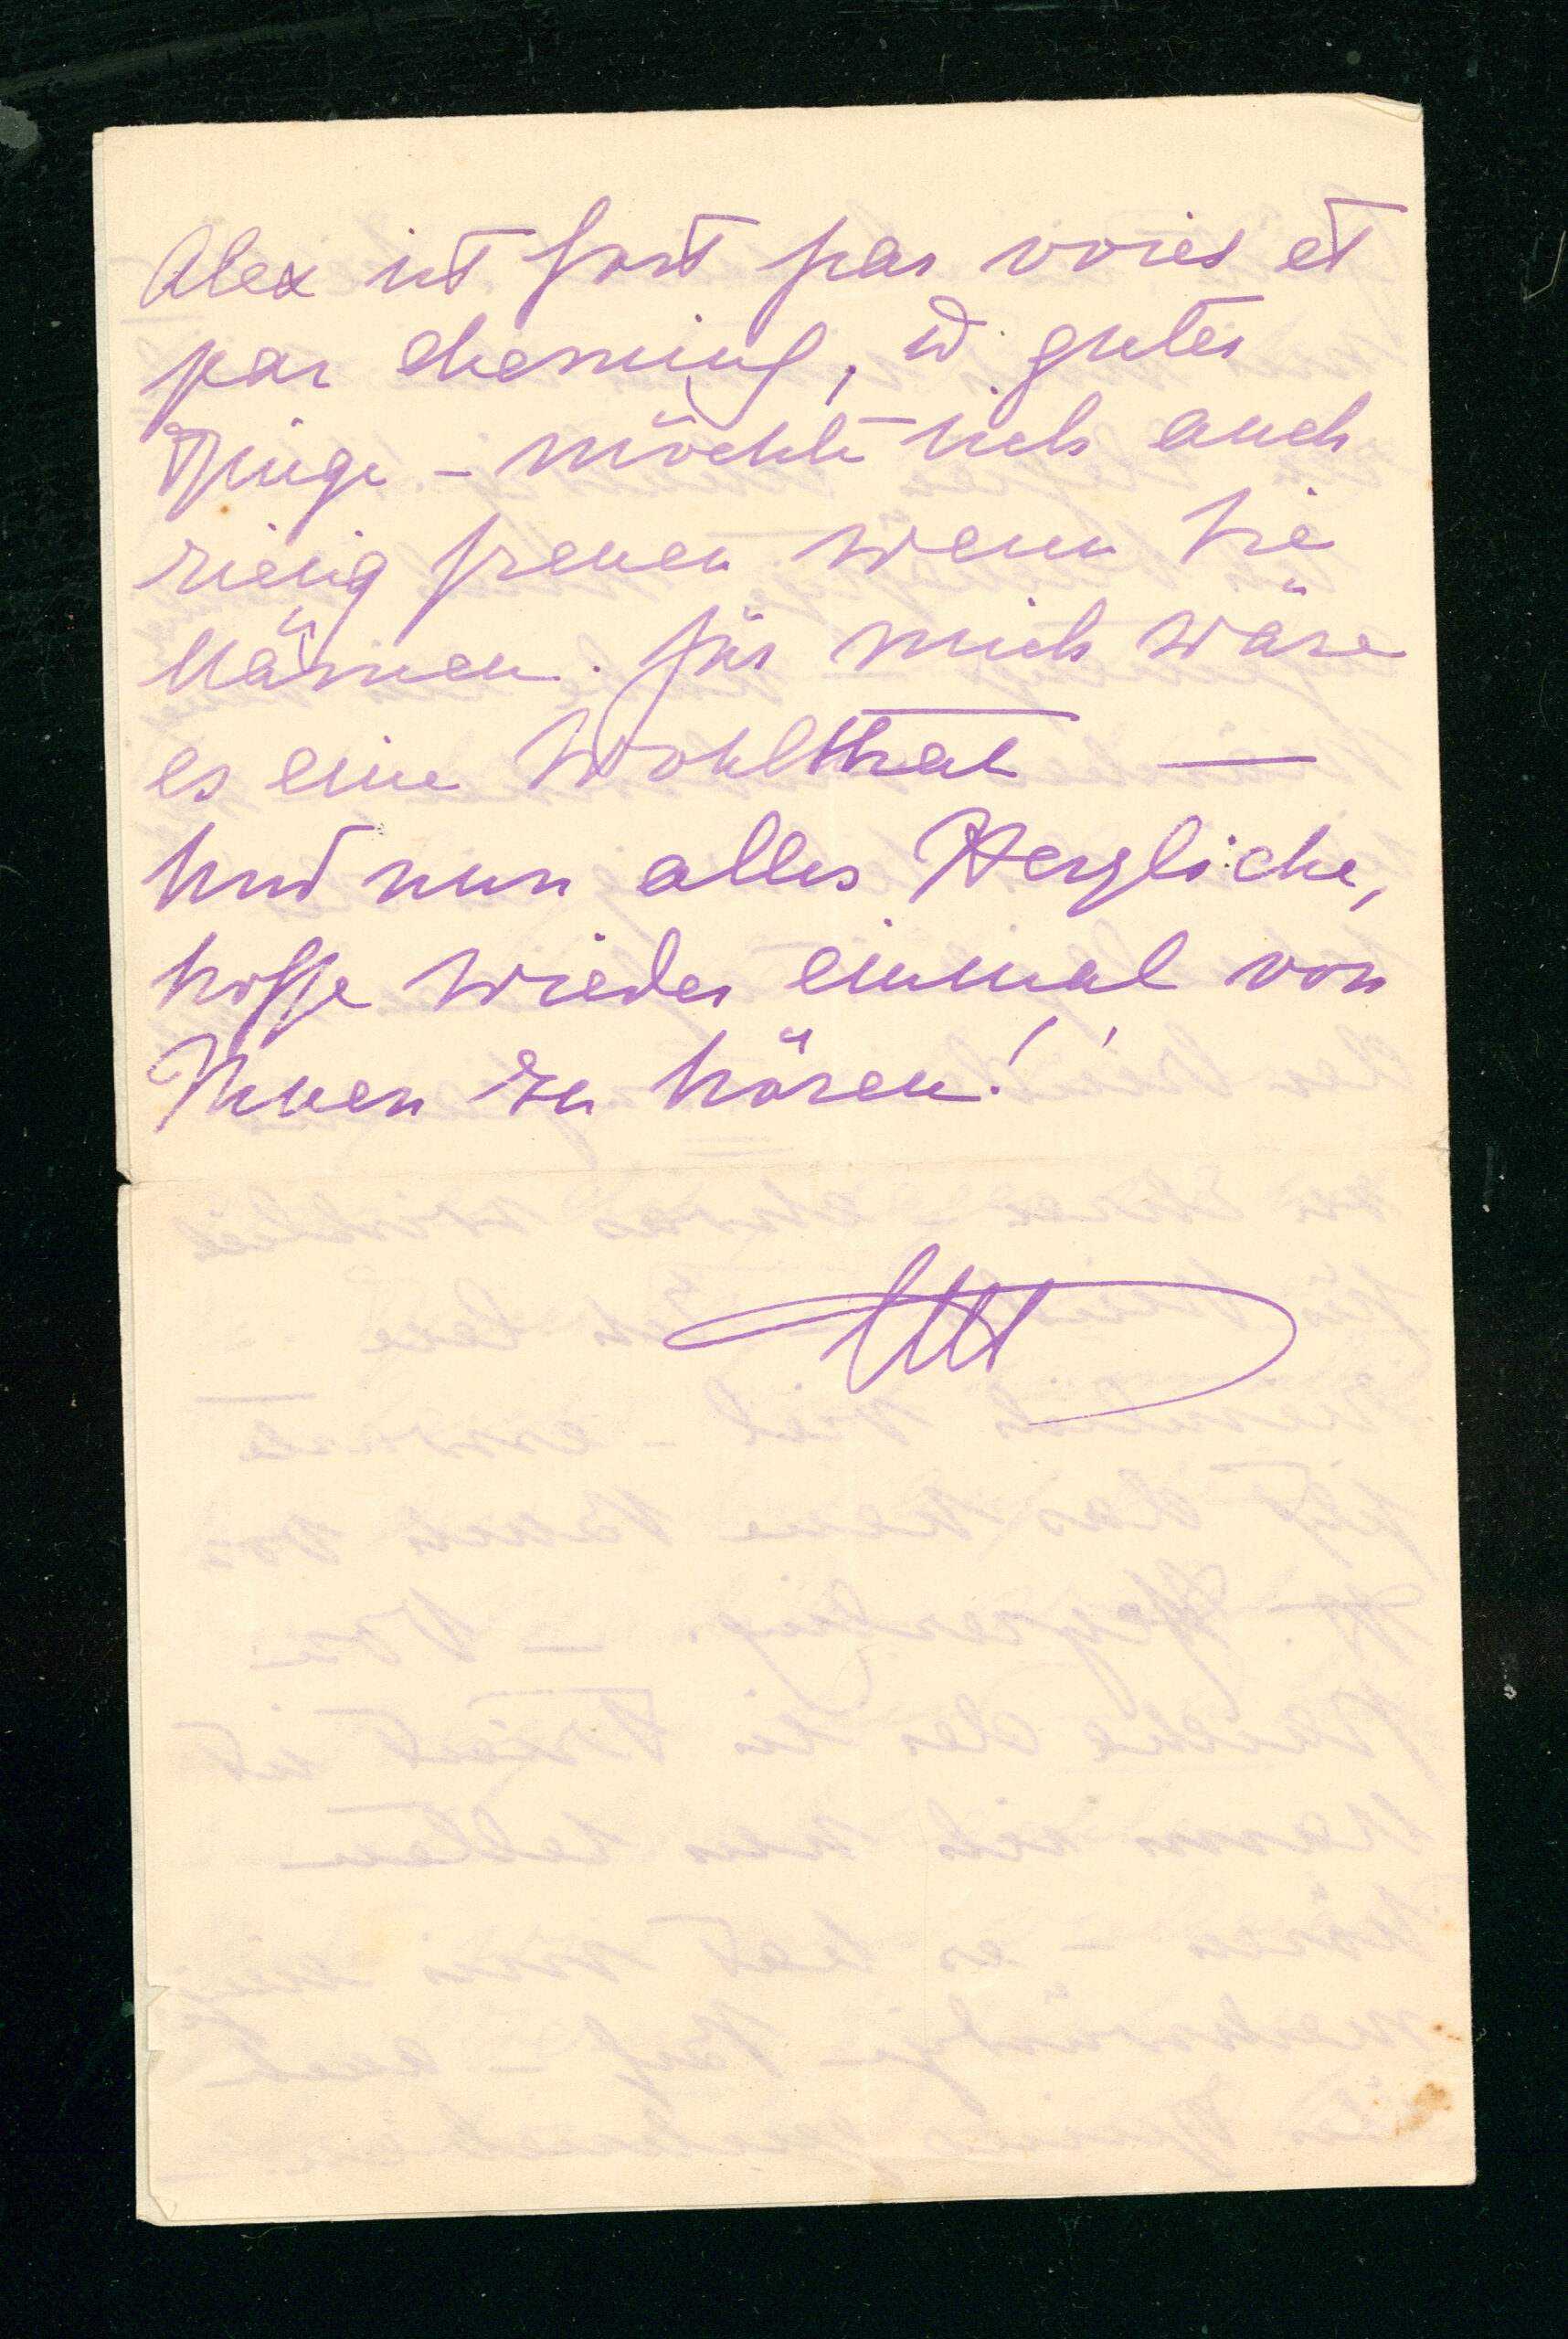 Alex ist fort par voies et
par chemins, u. guter
Dinge – möchte sich auch
riesig freuen wenn Sie
kämen. Für mich wäre
es eine Wohlthat —
Und nun alles Herzliche,
hoffe wieder einmal von
Ihnen zu hören!